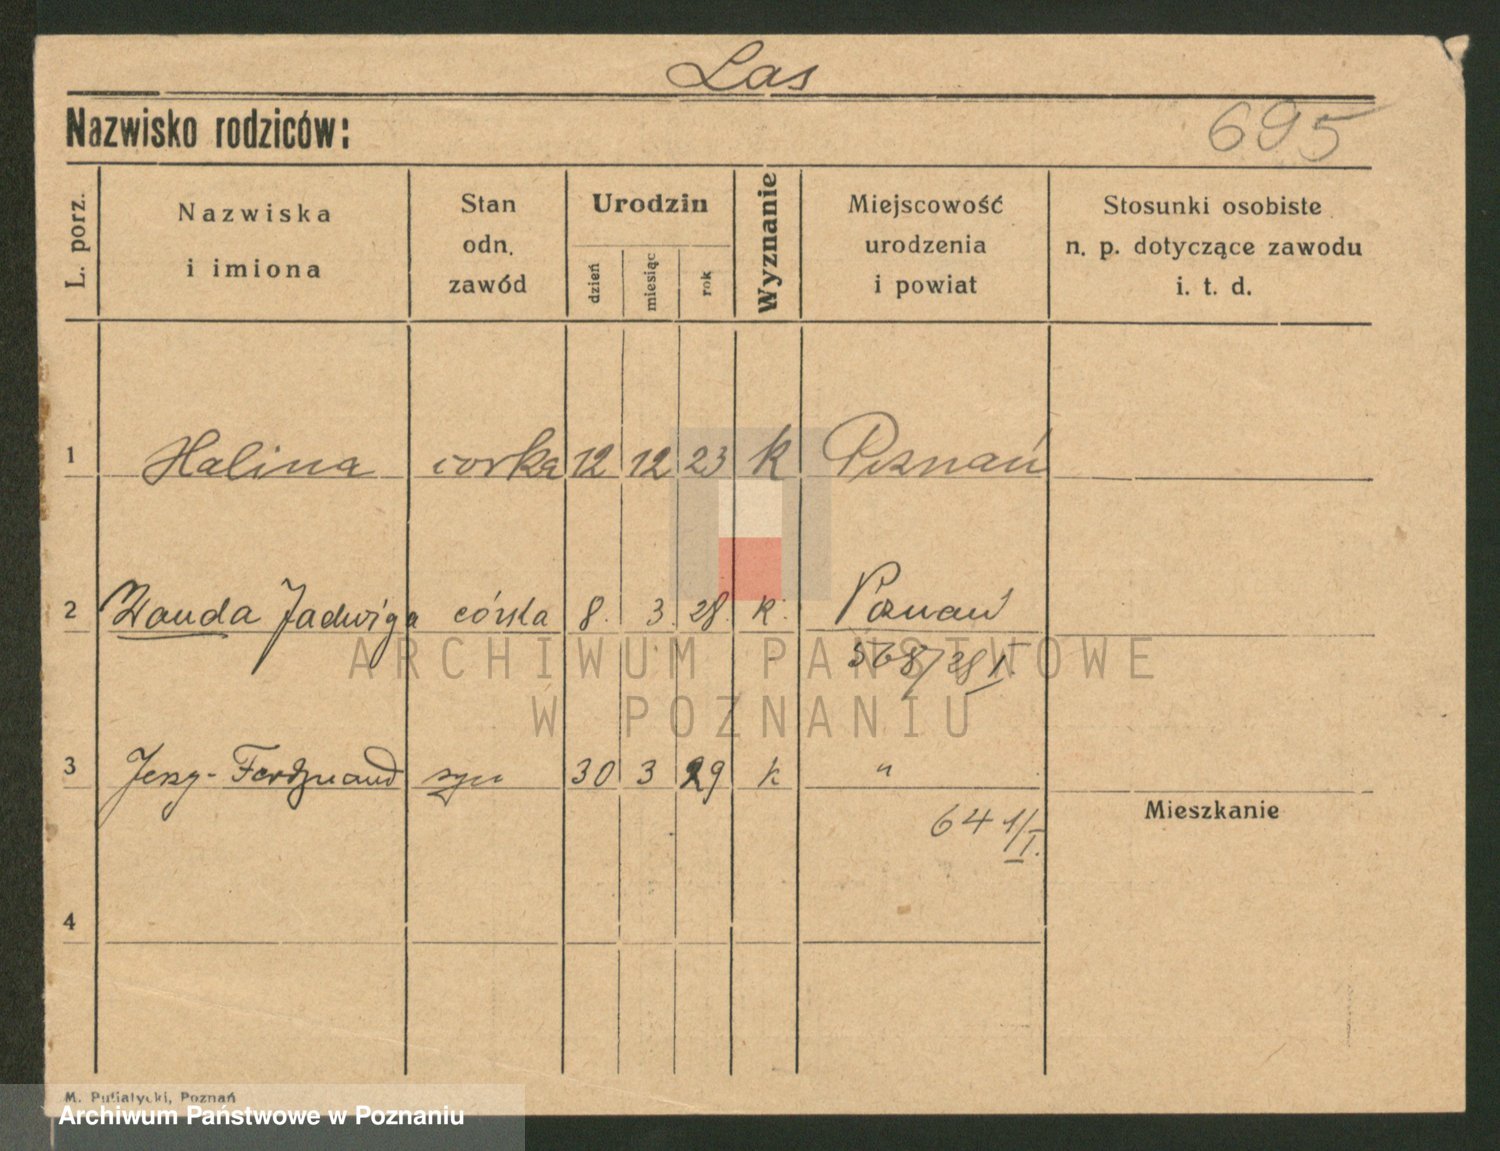 Las
Nazwisko rodziców:
695
L. porz.
Nazwiska
i imiona
Stan
odn.
zawód
Urodzin
dzień
miesiąc
rok
Wyznanie
Miejscowość
urodzenia
i powiat
Stosunki osobiste
n. p. dotyczące zawodu
i. t. d.
1 Halina corka 12 12 23 k Poznań
2 Wanda Jadwiga córka 8. 3. 28. k. Poznań
568/28 I.
3 Jerzy-Ferdynand syn 30 3 29 k "
Mieszkanie
641/I.
4
ARCHIWUM PAŃSTWOWE
W POZNANIU
M. Putiatycki, Poznań
Archiwum Państwowe w Poznaniu